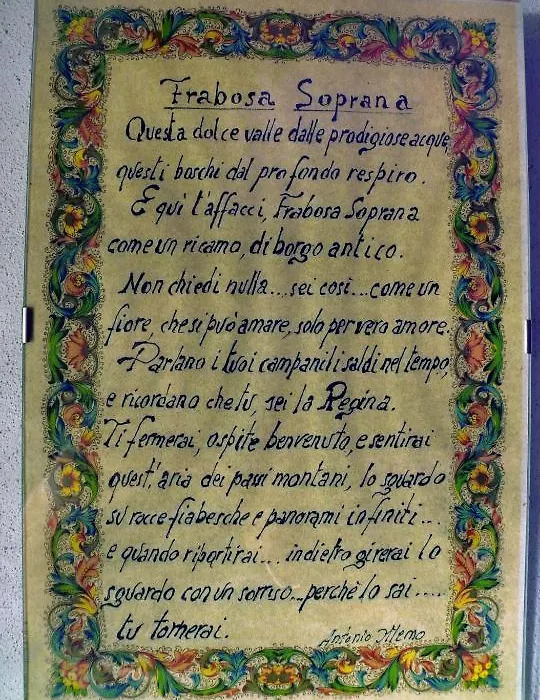 Frabosa Soprana
Questa dolce valle dalle prodigiose acque,
questi boschi dal profondo respiro.
E qui t'affacci, Frabosa Soprana
come un ricamo, di borgo antico.
Non chiedi nulla... sei così... come un
fiore, che si può amare, solo per vero amore.
Parlano i tuoi campanili saldi nel tempo,
e ricordano che tu, sei la Regina.
Ti fermerai, ospite benvenuto, e sentirai
quest'aria dei passi montani, lo sguardo
su rocce fiabesche e panorami infiniti...
e quando ripartirai... indietro girerai lo
sguardo con un sorriso... perchè lo sai....
tu tornerai.
Antonio